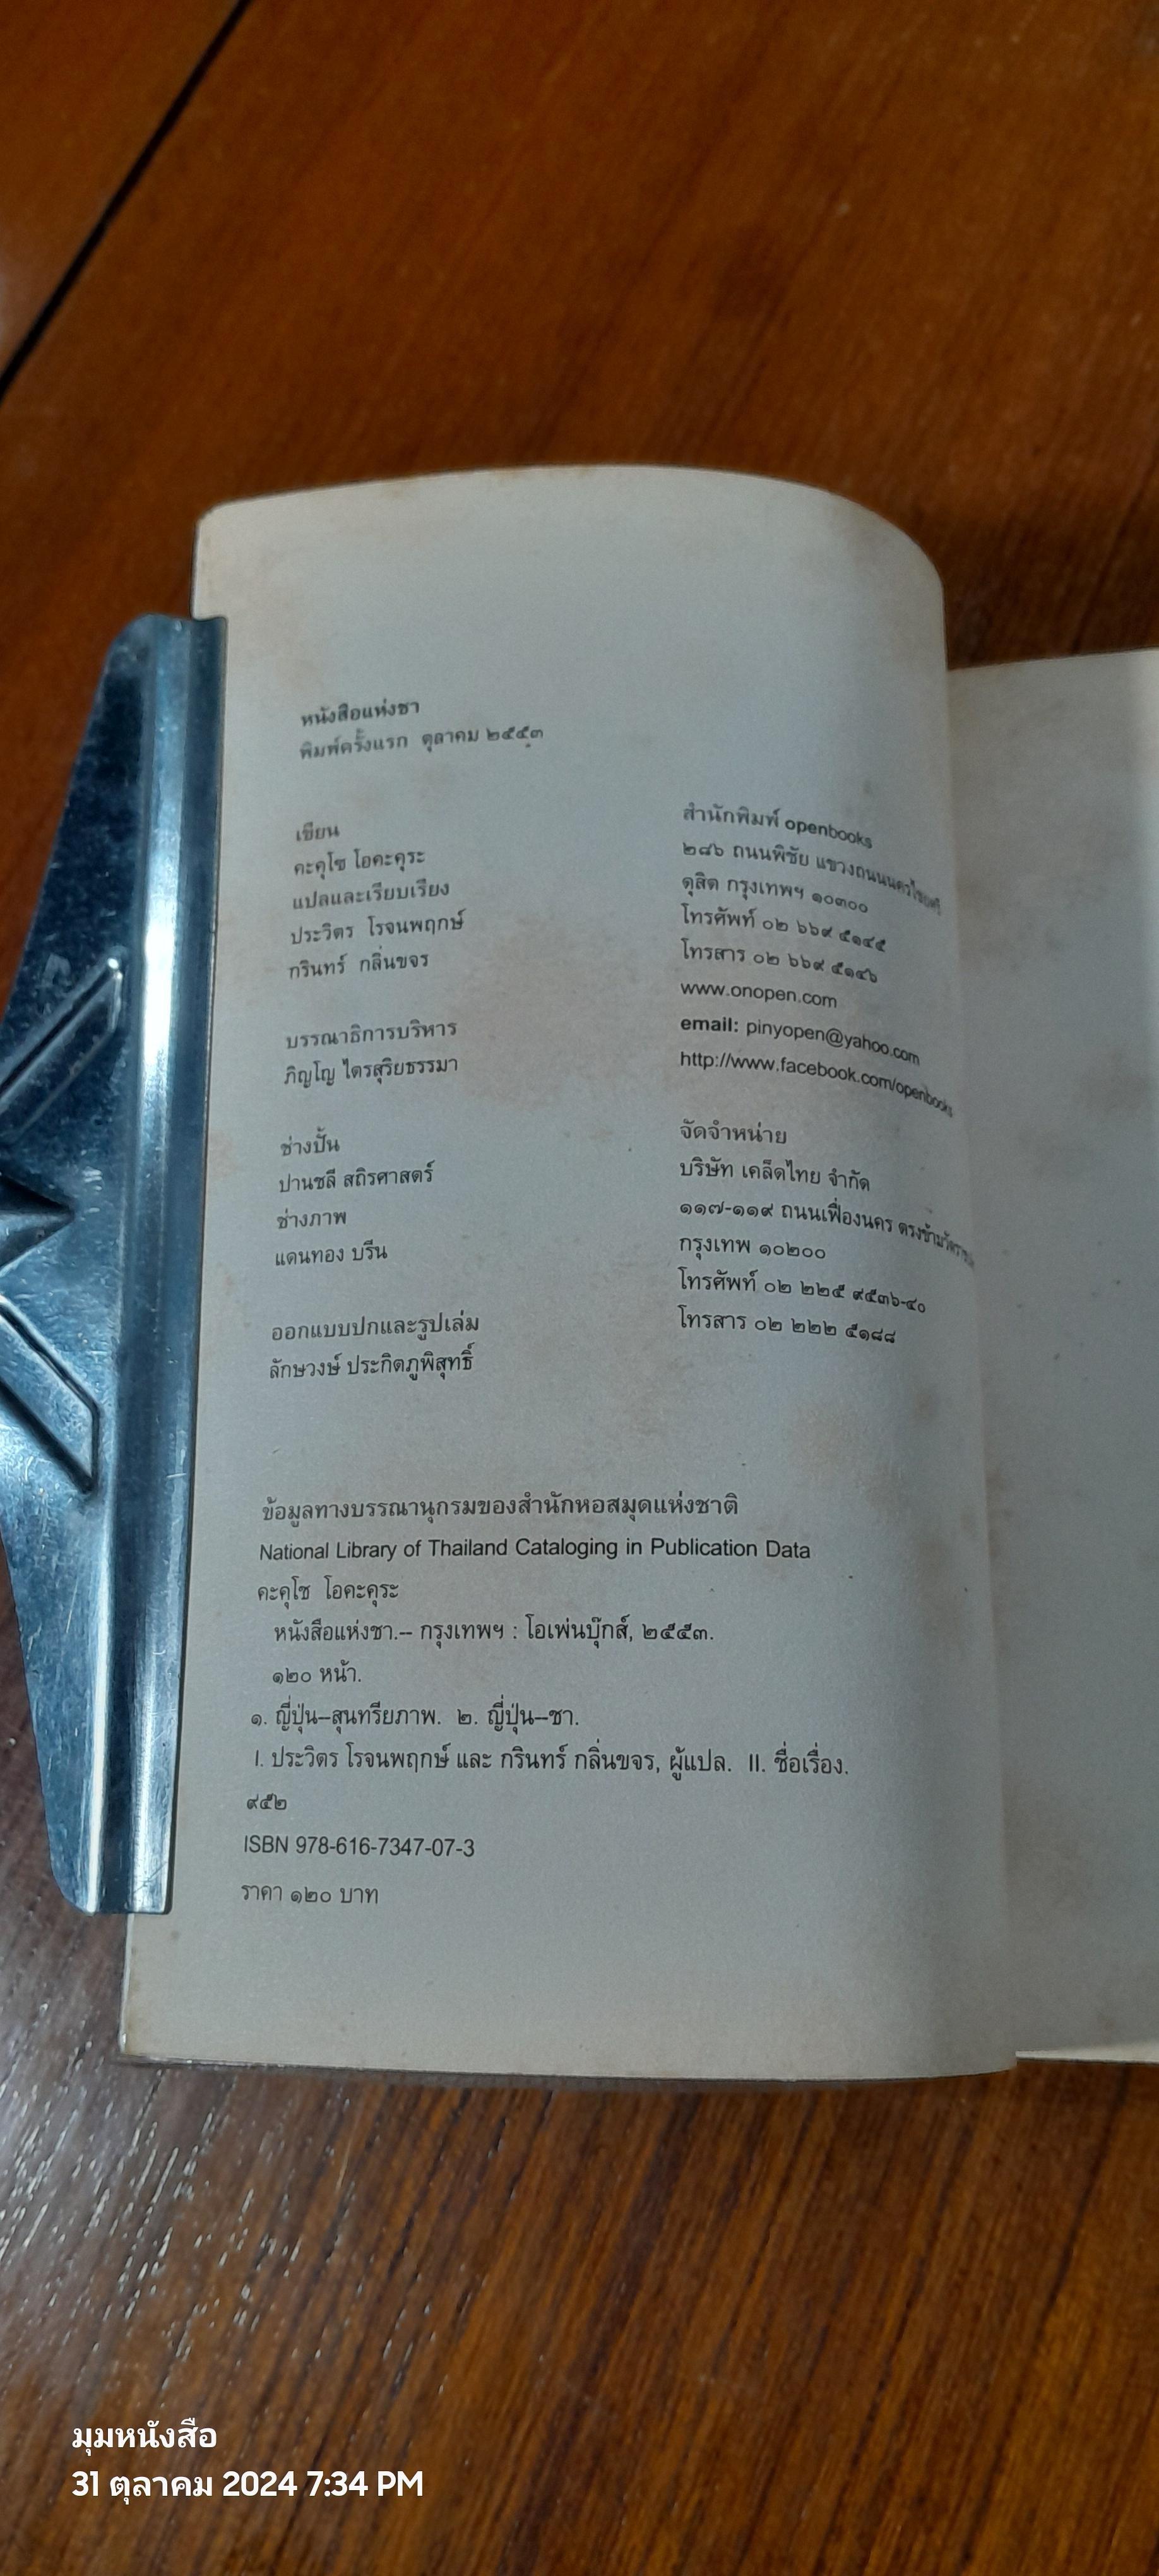 หนังสือแห่งชา
พิมพ์ครั้งแรก ตุลาคม ๒๕๕๓
เขียน
คะคุโซ โอคะคุระ
แปลและเรียบเรียง
ประวิตร โรจนพฤกษ์
กรินทร์ กลิ่นขจร
บรรณาธิการบริหาร
ภิญโญ ไตรสุริยธรรมา
ช่างปั้น
ปานชลี สถิรศาสตร์
ช่างภาพ
แดนทอง บรีน
ออกแบบปกและรูปเล่ม
ลักษวงษ์ ประกิตภูพิสุทธิ์
สำนักพิมพ์ openbooks
๒๘๖ ถนนพิชัย แขวงถนนนครไชยศรี
ดุสิต กรุงเทพฯ ๑๐๓๐๐
โทรศัพท์ ๐๒ ๖๖๙ ๕๑๔๕
โทรสาร ๐๒ ๖๖๙ ๕๑๔๖
www.onopen.com
email: pinyopen@yahoo.com
http://www.facebook.com/openbooks
จัดจำหน่าย
บริษัท เคล็ดไทย จำกัด
๑๑๗-๑๑๙ ถนนเฟื่องนคร ตรงข้าม
กรุงเทพ ๑๐๒๐๐
โทรศัพท์ ๐๒ ๒๒๕ ๙๕๓๖-๔๐
โทรสาร ๐๒ ๒๒๒ ๕๑๘๘
ข้อมูลทางบรรณานุกรมของสำนักหอสมุดแห่งชาติ
National Library of Thailand Cataloging in Publication Data
คะคุโซ โอคะคุระ
หนังสือแห่งชา.-- กรุงเทพฯ : โอเพ่นบุ๊กส์, ๒๕๕๓.
๑๒๐ หน้า.
๑. ญี่ปุ่น--สุนทรียภาพ. ๒. ญี่ปุ่น--ชา.
I. ประวิตร โรจนพฤกษ์ และ กรินทร์ กลิ่นขจร, ผู้แปล. II. ชื่อเรื่อง.
๙๕๒
ISBN 978-616-7347-07-3
ราคา ๑๒๐ บาท
มุมหนังสือ
31 ตุลาคม 2024 7:34 PM